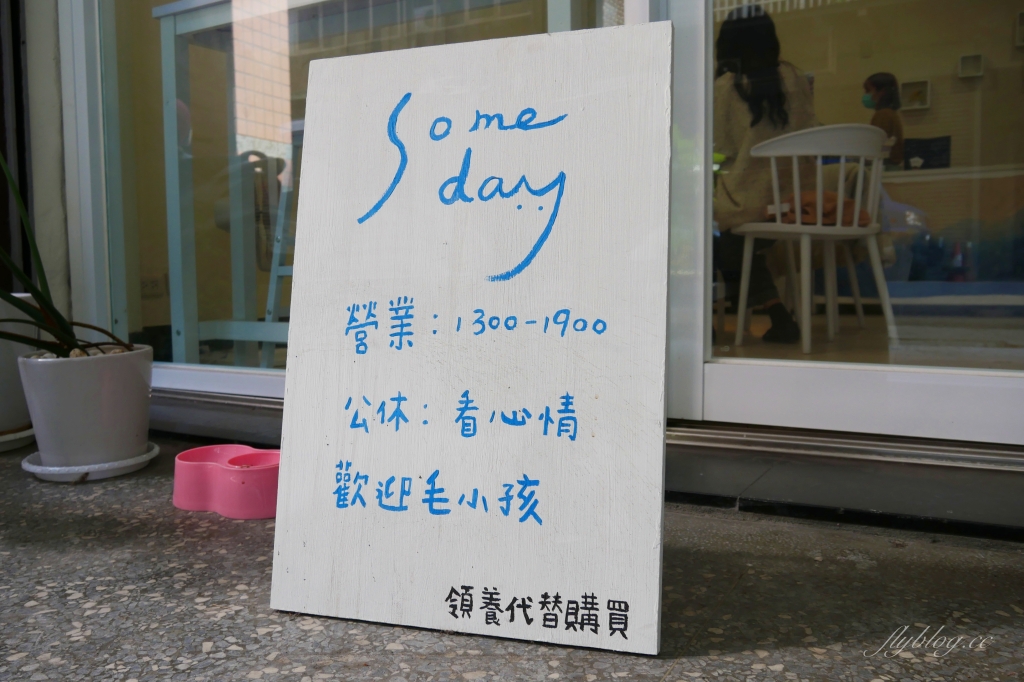 Some
day
營業：1300-1900
公休：看心情
歡迎毛小孩
領養代替購買
flyblog.cc